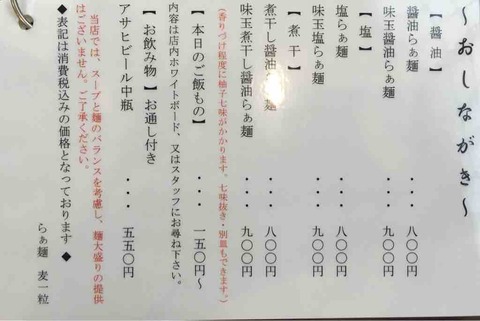 〜おしながき〜
【醤油】
醤油らぁ麺・・・八〇〇円
味玉醤油らぁ麺・・・九〇〇円
【塩】
塩らぁ麺・・・八〇〇円
味玉塩らぁ麺・・・九〇〇円
【煮干】
煮干し醤油らぁ麺・・・八〇〇円
味玉煮干し醤油らぁ麺・・・九〇〇円
（香りづけ程度に柚子七味がかかります。七味抜き・別皿もできます。）
【本日のご飯もの】・・・一五〇円〜
内容は店内ホワイトボード、又はスタッフにお尋ね下さい。
【お飲み物】お通し付き
アサヒビール中瓶・・・五五〇円
当店では、スープと麺のバランスを考慮し、麺大盛りの提供
はございません。ご了承ください。
◆表記は消費税込みの価格となっております◆
らぁ麺 麦一粒